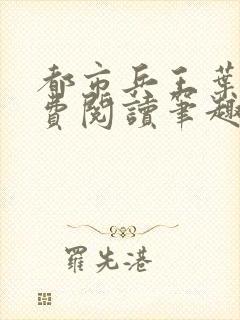 都市兵王葉
費閱讀筆趣
羅先港